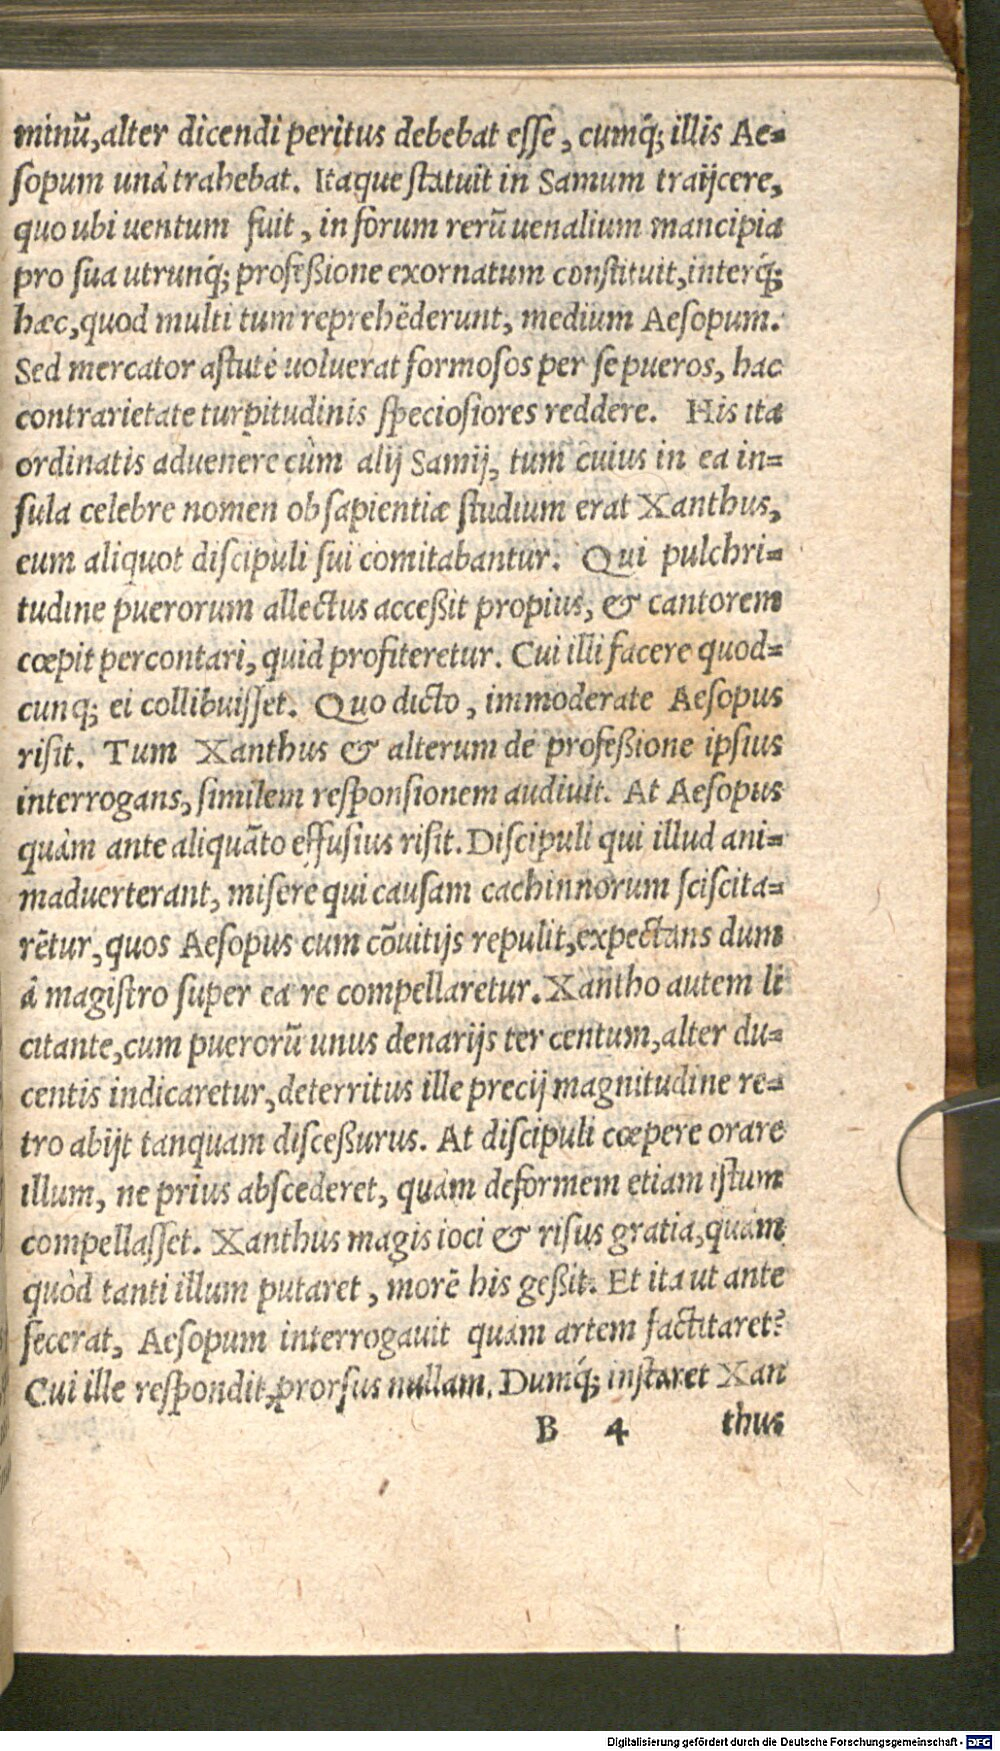 minū, alter dicendi peritus debebat eſſe, cumq́; illis Ae-
ſopum unà trahebat. Itaque ſtatuit in Samum traijcere,
quo ubi uentum fuit, in forum rerū uenalium mancipia
pro ſua utrunq́; profeßione exornatum conſtituit, interq́;
hæc, quod multi tum reprehēderunt, medium Aeſopum.
Sed mercator aſtutè uoluerat formoſos per ſe pueros, hac
contrarietate turpitudinis ſpecioſiores reddere. His ita
ordinatis aduenere cùm alij Samij, tum cuius in ea in-
ſula celebre nomen ob ſapientiæ ſtudium erat Xanthus,
eum aliquot diſcipuli ſui comitabantur. Qui pulchri-
tudine puerorum allectus acceßit propius, & cantorem
cœpit percontari, quid profiteretur. Cui illi facere quod-
cunq; ei collibuiſſet. Quo dicto, immoderate Aeſopus
riſit. Tum Xanthus & alterum de profeßione ipſius
interrogans, ſimilem reſponſionem audiuit. At Aeſopus
quàm ante aliquāto effuſius riſit. Diſcipuli qui illud ani-
maduerterant, miſere qui cauſam cachinnorum ſciſcita-
rētur, quos Aeſopus cum cōuitijs repulit, expectans dum
à magiſtro ſuper ea re compellaretur. Xantho autem li
citante, cum puerorū unus denarijs ter centum, alter du-
centis indicaretur, deterritus ille precij magnitudine re-
tro abijt tanquam diſceßurus. At diſcipuli cœpere orare
illum, ne prius abſcederet, quàm deformem etiam iſtum
compellaſſet. Xanthus magis ioci & riſus gratia, quàm
quòd tanti illum putaret, morē his geßit. Et ita ut ante
fecerat, Aeſopum interrogauit quam artem factitaret?
Cui ille reſpondit, prorſus nullam. Dumq́; inſtaret Xan
B 4 thus
Digitalisierung gefördert durch die Deutsche Forschungsgemeinschaft - DFG